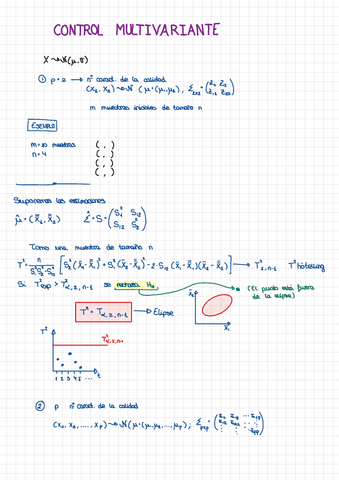 CONTROL MULTIVARIANTE
X ~ N(μ, σ)
① p = 2 → nº caract. de la calidad
(X₁, X₂) ~ N (μ = (μ₁, μ₂),
m muestras iniciales de tamaño n
EJEMPLO
m = 20 muestras
n = 4
Suponemos las estimaciones
μ̂ = (X̄₁, X̄₂) Σ̂ = S = (S₁² S₁₂
S₁₂ S₂²)
Tomo una muestra de tamaño n
T² = n / S₁² S₂² - S₁₂ [S₂² (X̄₁ - X̄₁)² + S₁² (X̄₂ - X̄₂)² - 2 · S₁₂ (X̄₁ - X̄₁)(X̄₂ - X̄₂)] → T²₂,ₙ₋₁ T² hotelling
Si T²exp > T²α,2,n-1 se rechaza H₀
(El punto está fuera
de la elipse)
T² = T²α,2,n-1 → Elipse
X̄₂
X̄₁
T²
T²α,2,n-1
1 2 3 4 5 ... t
② p nº caract. de la calidad
(X₁, X₂, ..., Xp) ~ N (μ = (μ₁, μ₂, ..., μp);